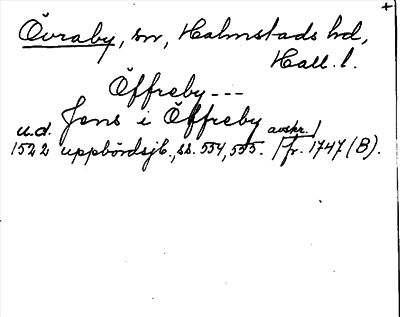 +
Övraby, sn, Halmstads hd,
Hall. l.
Öffreby ---
u.d. Jens i Öffreby avskr.
1522 uppbördsjb., ss. 554, 555. / fr. 1747 (B).